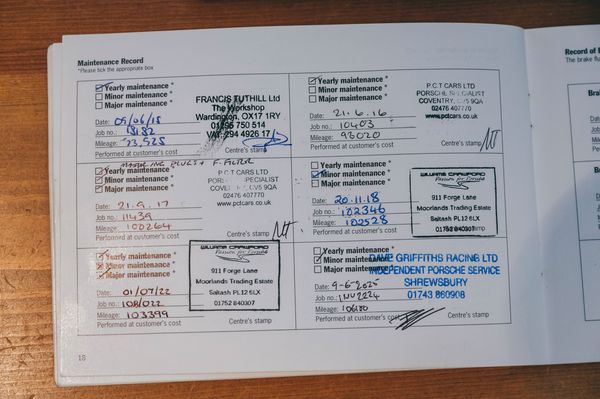 Maintenance Record
*Please tick the appropriate box
Yearly maintenance *
Minor maintenance *
Major maintenance *
FRANCIS TUTHILL Ltd
The Workshop
Wardington, OX17 1RY
01295 750 514
VAT: 294 4926 17
Date: 05/06/15
Job no.: 18182
Mileage: 73,525
Performed at customer's cost
Centre's stamp
Yearly maintenance *
Minor maintenance *
Major maintenance *
P.C.T CARS LTD
PORSCHE SPECIALIST
COVENTRY, CV5 9QA
02476 407770
www.pctcars.co.uk
Date: 21.6.16
Job no.: 10403
Mileage: 93020
Performed at customer's cost
Centre's stamp
Yearly maintenance *
Minor maintenance *
Major maintenance *
P.C.T CARS LTD
PORSCHE SPECIALIST
COVENTRY, CV5 9QA
02476 407770
www.pctcars.co.uk
Date: 21.9.17
Job no.: 11439
Mileage: 100264
Performed at customer's cost
Centre's stamp
Yearly maintenance *
Minor maintenance *
Major maintenance *
WILLIAMS CRAWFORD
Passion for Porsche
911 Forge Lane
Moorlands Trading Estate
Saltash PL12 6LX
01752 840307
Date: 20.11.18
Job no.: 102346
Mileage: 102528
Performed at customer's cost
Centre's stamp
Yearly maintenance *
Minor maintenance *
Major maintenance *
WILLIAMS CRAWFORD
Passion for Porsche
911 Forge Lane
Moorlands Trading Estate
Saltash PL12 6LX
01752 840307
Date: 01/07/22
Job no.: 108/022
Mileage: 103399
Performed at customer's cost
Centre's stamp
Yearly maintenance *
Minor maintenance *
Major maintenance
DAVE GRIFFITHS RACING LTD
INDEPENDENT PORSCHE SERVICE
SHREWSBURY
01743 860908
Date: 9-6-2025
Job no.:
Mileage: 106100
Performed at customer's cost
Centre's stamp
18
Record of
The brake flu
Bra